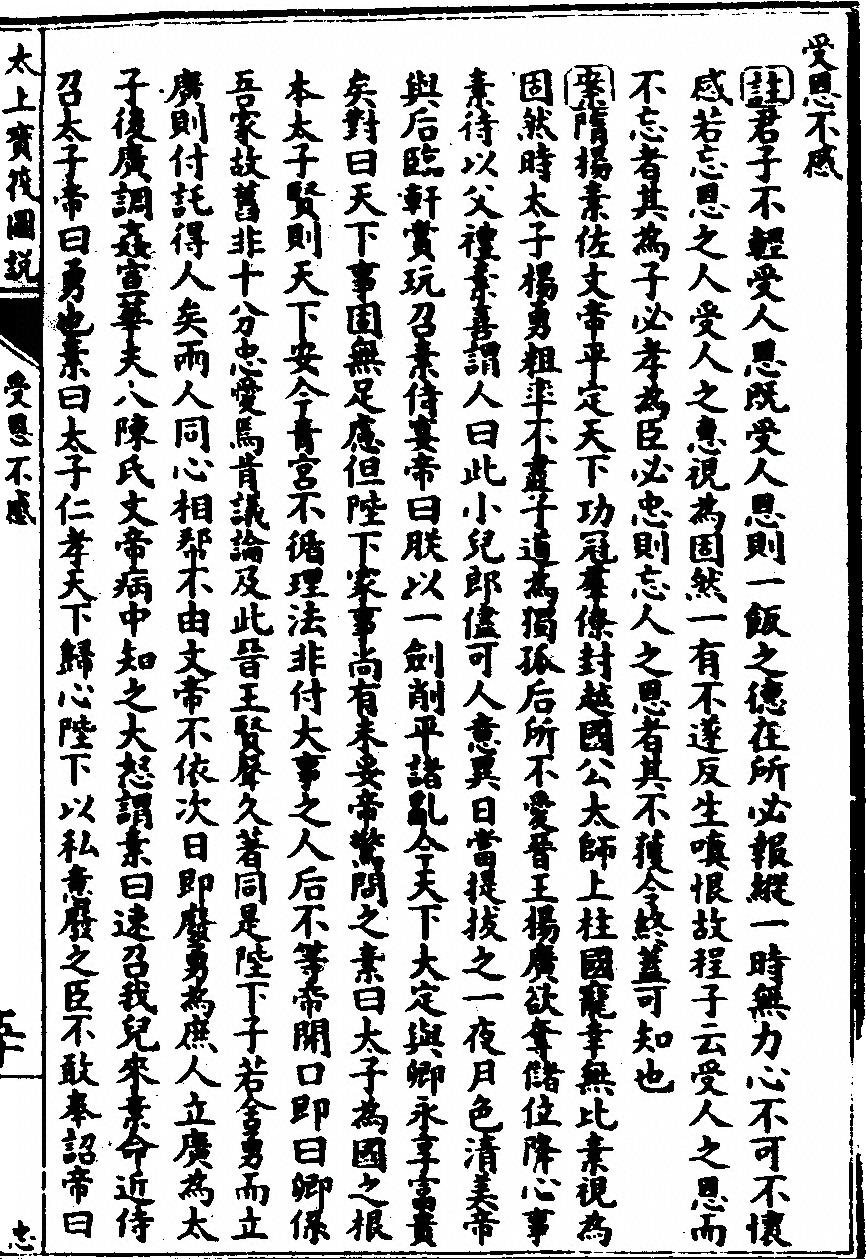 受恩不感
註君子不輕受人恩既受人恩則一飯之德在所必報縱一時無力心不可不懷
感若忘恩之人受人之惠視為固然一有不遂反生嗔恨故程子云受人之恩而
不忘者其為子必孝為臣必忠則忘人之恩者其不獲令終蓋可知也
案隋楊素佐文帝平定天下功冠羣僚封越國公太師上柱國寵幸無比素視為
固然時太子楊勇粗率不盡子道為獨孤后所不愛晉王楊廣欲奪儲位降心事
素待以父禮素喜謂人曰此小兒郎儘可人意異日當提拔之一夜月色清美帝
與后臨軒賞玩召素侍宴帝曰朕以一劍削平諸亂今天下大定與卿永享富貴
矣對曰天下事固無足慮但陛下家事尚有未妥帝驚問之素曰太子為國之根
本太子賢則天下安今青宮不循理法非付大事之人后不等帝開口即曰卿係
吾家故舊非十分忠愛焉肯議論及此晉王賢聲久著同是陛下子若舍勇而立
廣則付託得人矣兩人同心相帮不由文帝不依次日即廢勇為庶人立廣為太
子後廣調姦宣華夫人陳氏文帝病中知之大怒謂素曰速召我兒來素命近侍
召太子帝曰勇也素曰太子仁孝天下歸心陛下以私意廢之臣不敢奉詔帝曰
太上寶筏圖說
受恩不感
五十
忠